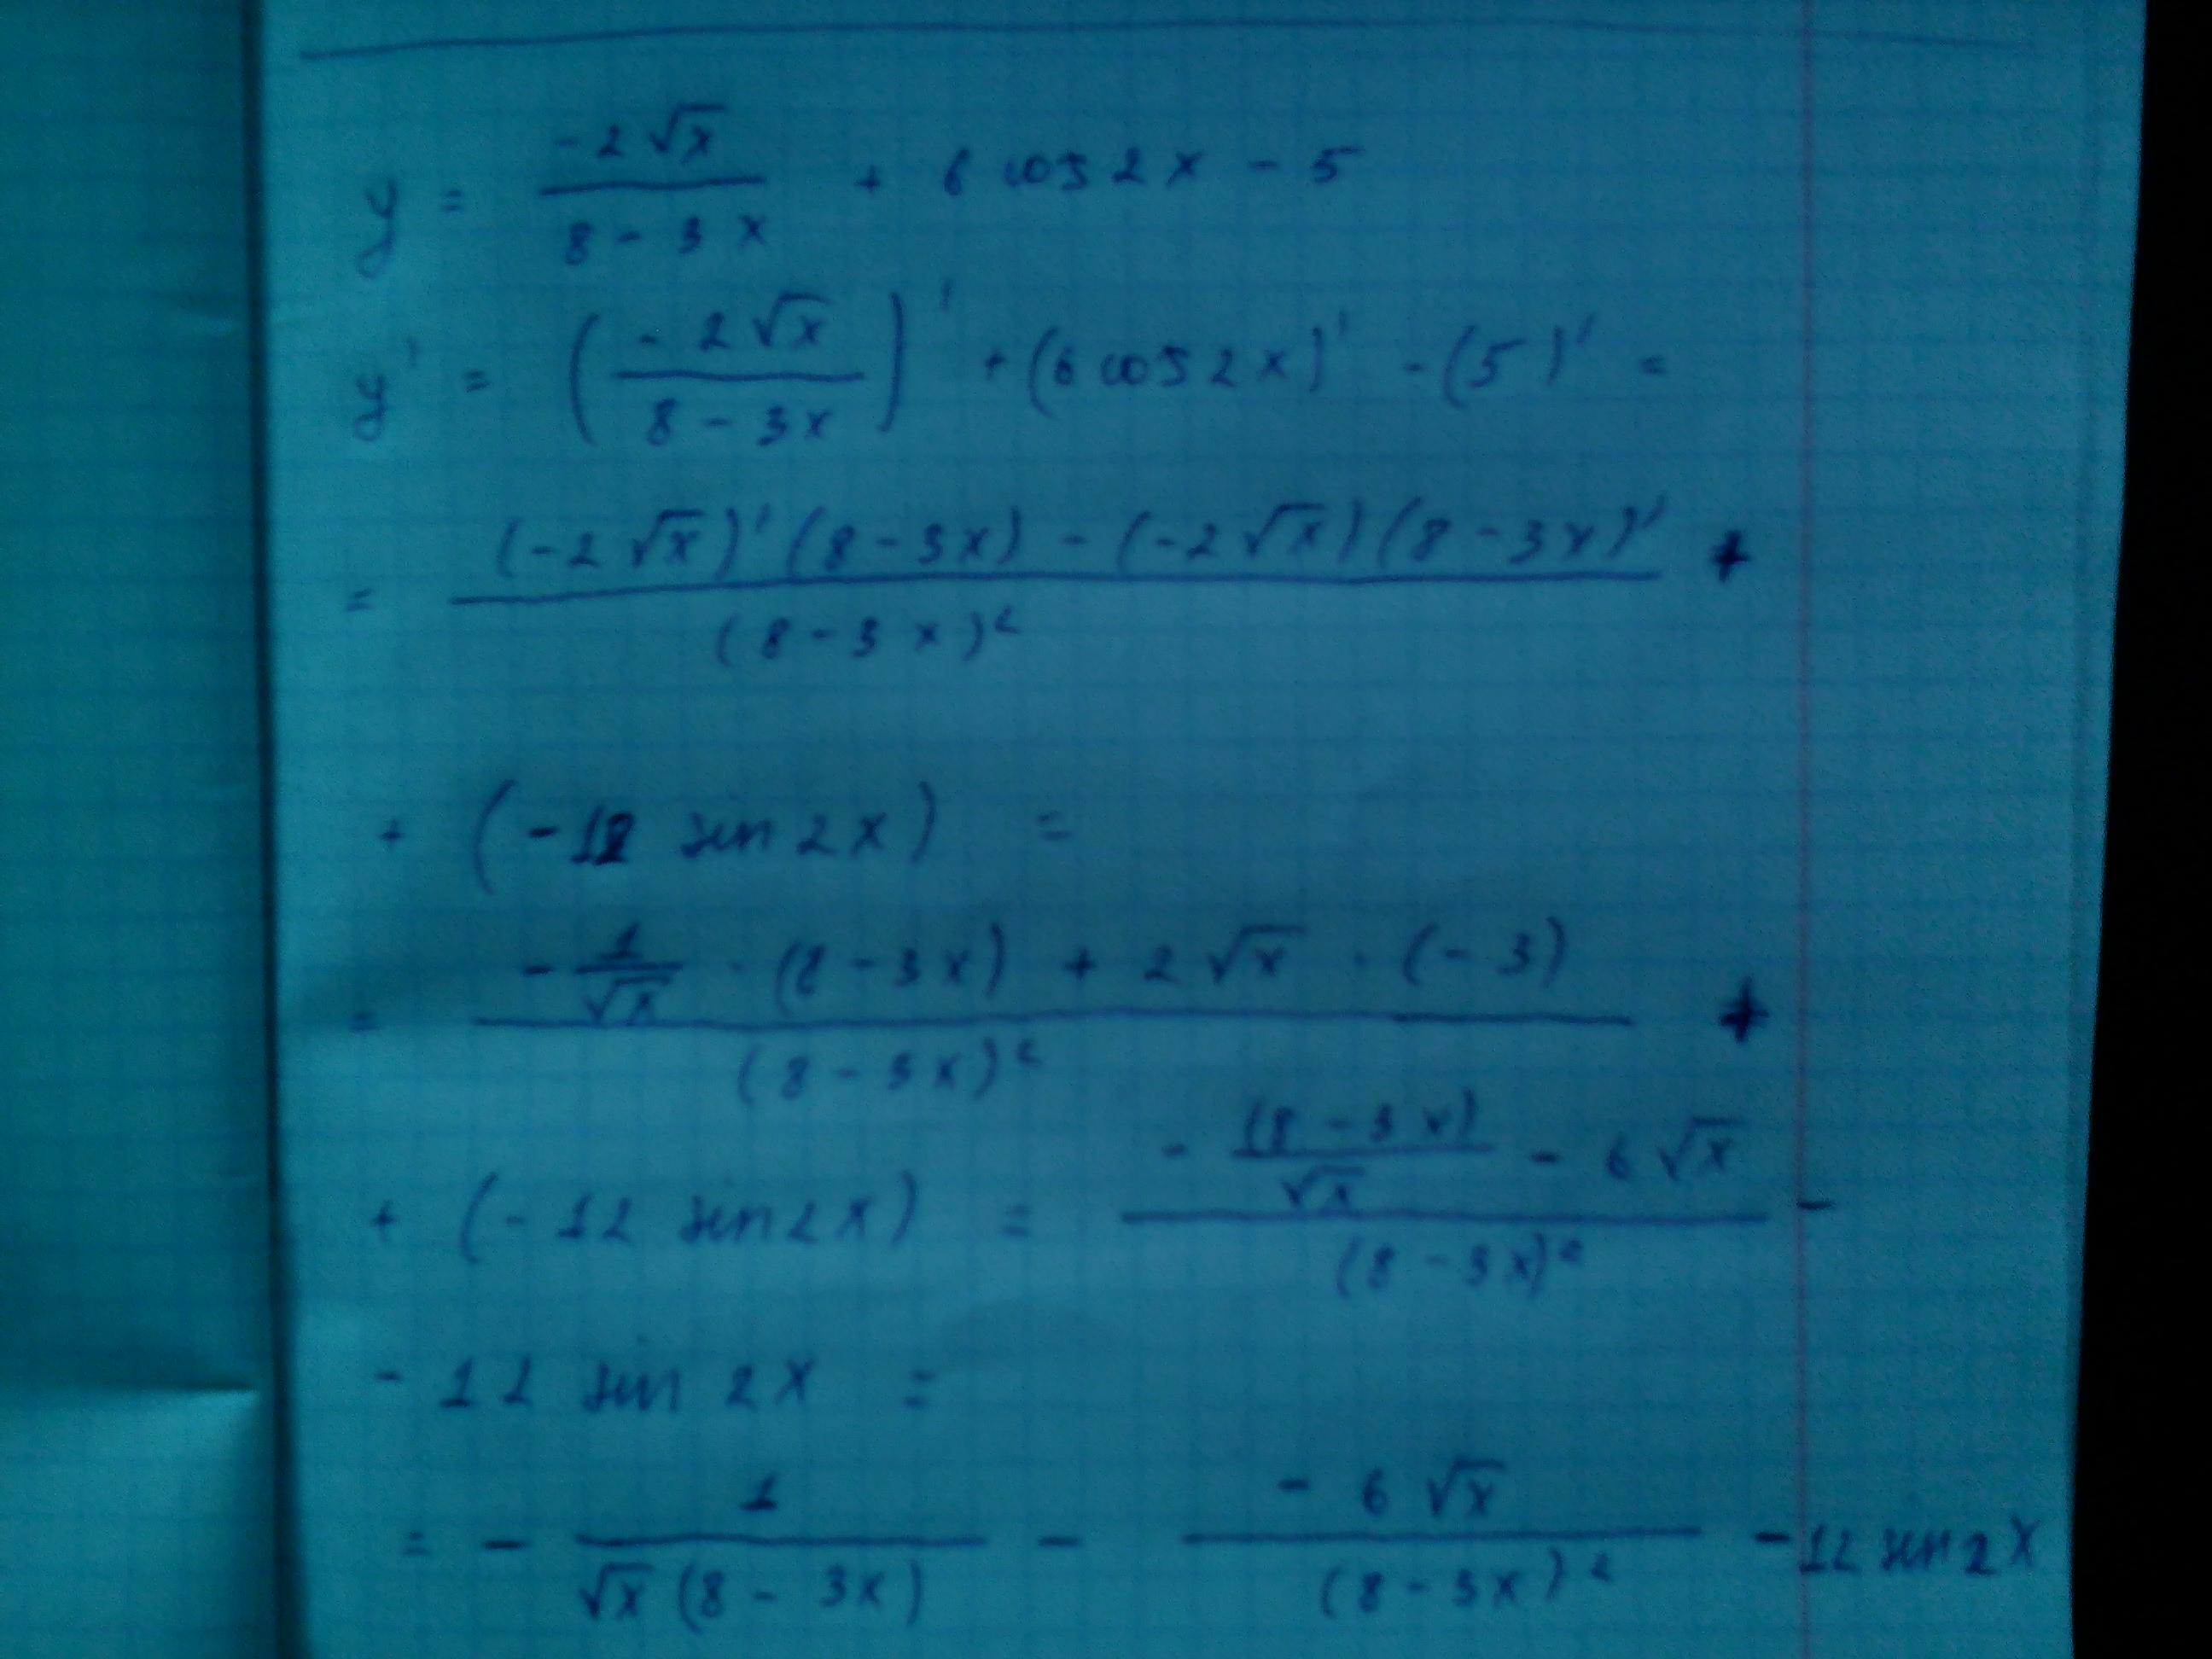 y = \frac{-2\sqrt{x}}{8-3x} + 6 cos 2x - 5
y' = \left(\frac{-2\sqrt{x}}{8-3x}\right)' + (6 cos 2x)' - (5)' =
= \frac{(-2\sqrt{x})'(8-3x) - (-2\sqrt{x})(8-3x)'}{(8-3x)^2} +
+ (-12 sin 2x) =
= \frac{-\frac{1}{\sqrt{x}} \cdot (8-3x) + 2\sqrt{x} \cdot (-3)}{(8-3x)^2} +
+ (-12 sin 2x) = \frac{-\frac{(8-3x)}{\sqrt{x}} - 6\sqrt{x}}{(8-3x)^2} -
- 12 sin 2x =
= - \frac{1}{\sqrt{x}(8-3x)} - \frac{-6\sqrt{x}}{(8-3x)^2} - 12 sin 2x